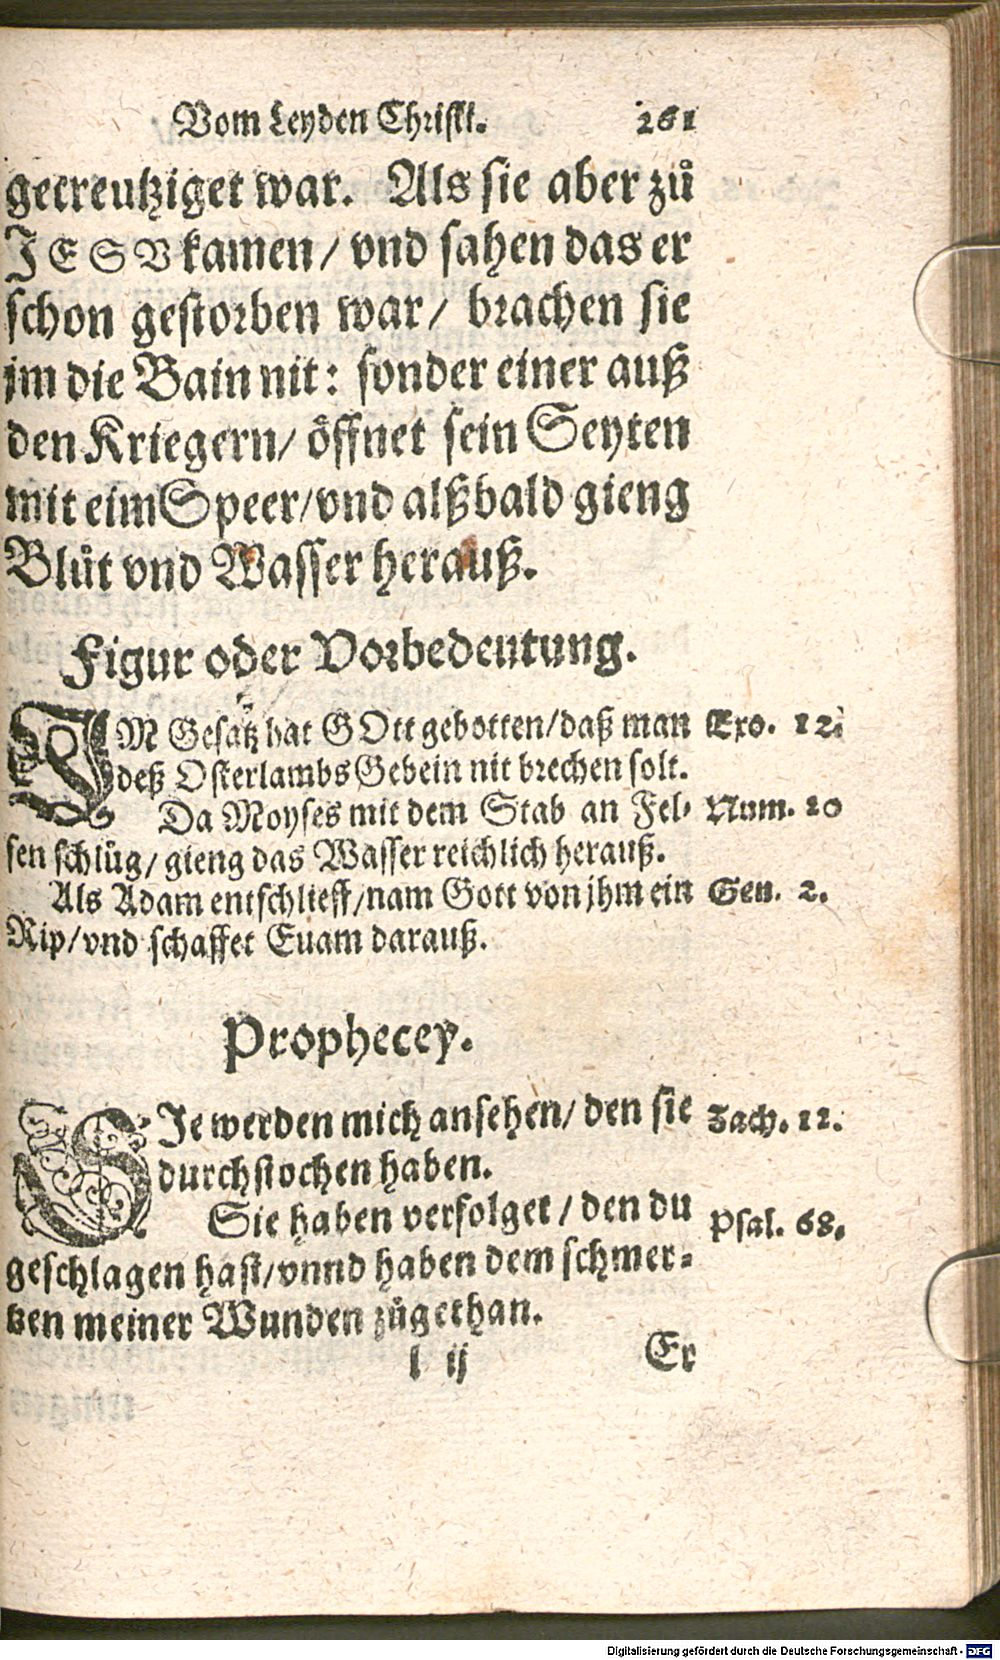 Vom Leyden Christi. 261
gecreutziget war. Als sie aber zů
JESV kamen/ vnd sahen das er
schon gestorben war/ brachen sie
jm die Bain nit: sonder einer auß
den Kriegern/ öffnet sein Seyten
mit eim Speer/ vnd alßbald gieng
Blůt vnd Wasser herauß.
Figur oder Vorbedeutung.
IM Gesätz hat GOtt gebotten/ daß man Exo. 12.
deß Osterlambs Gebein nit brechen solt.
Da Moyses mit dem Stab an Fel- Num. 20
sen schlůg/ gieng das Wasser reichlich herauß.
Als Adam entschlieff/ nam Gott von jhm ein Gen. 2.
Rip/ vnd schaffet Euam darauß.
Prophecey.
SIe werden mich ansehen/ den sie Zach. 12.
durchstochen haben.
Sie haben verfolget/ den du Psal. 68.
geschlagen hast/ vnnd haben dem schmer-
tzen meiner Wunden zůgethan.
l ij Er
Digitalisierung gefördert durch die Deutsche Forschungsgemeinschaft - DFG